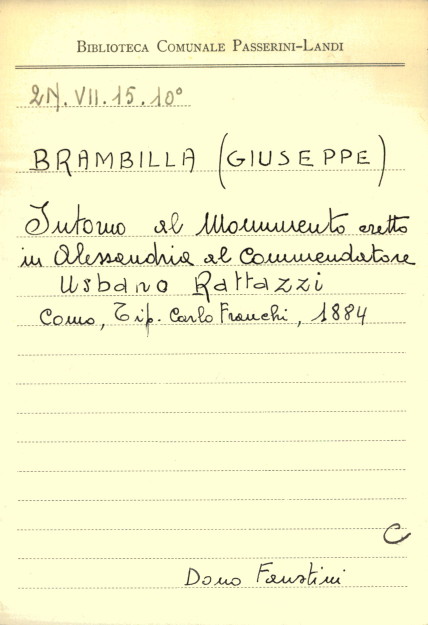 BIBLIOTECA COMUNALE PASSERINI-LANDI
2N.VII.15.10°
BRAMBILLA (GIUSEPPE)
Intorno al Monumento eretto
in Alessandria al Commendatore
Urbano Rattazzi
Como, Tip. Carlo Franchi, 1884
C
Dono Faustini